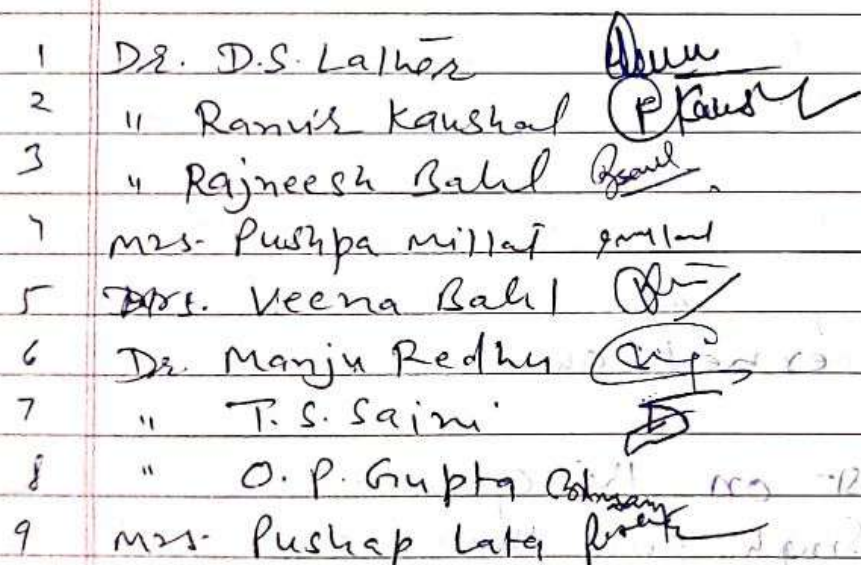 1 Dr. D.S. Lather
2 " Ranvir Kaushal P Kaush
3 " Rajneesh Bahl
4 Mrs. Pushpa Millat
5 Mrs. Veena Bahl
6 Dr. Manju Redhu
7 " T. S. Saini
8 " O. P. Gupta
9 Mrs. Pushap Lata